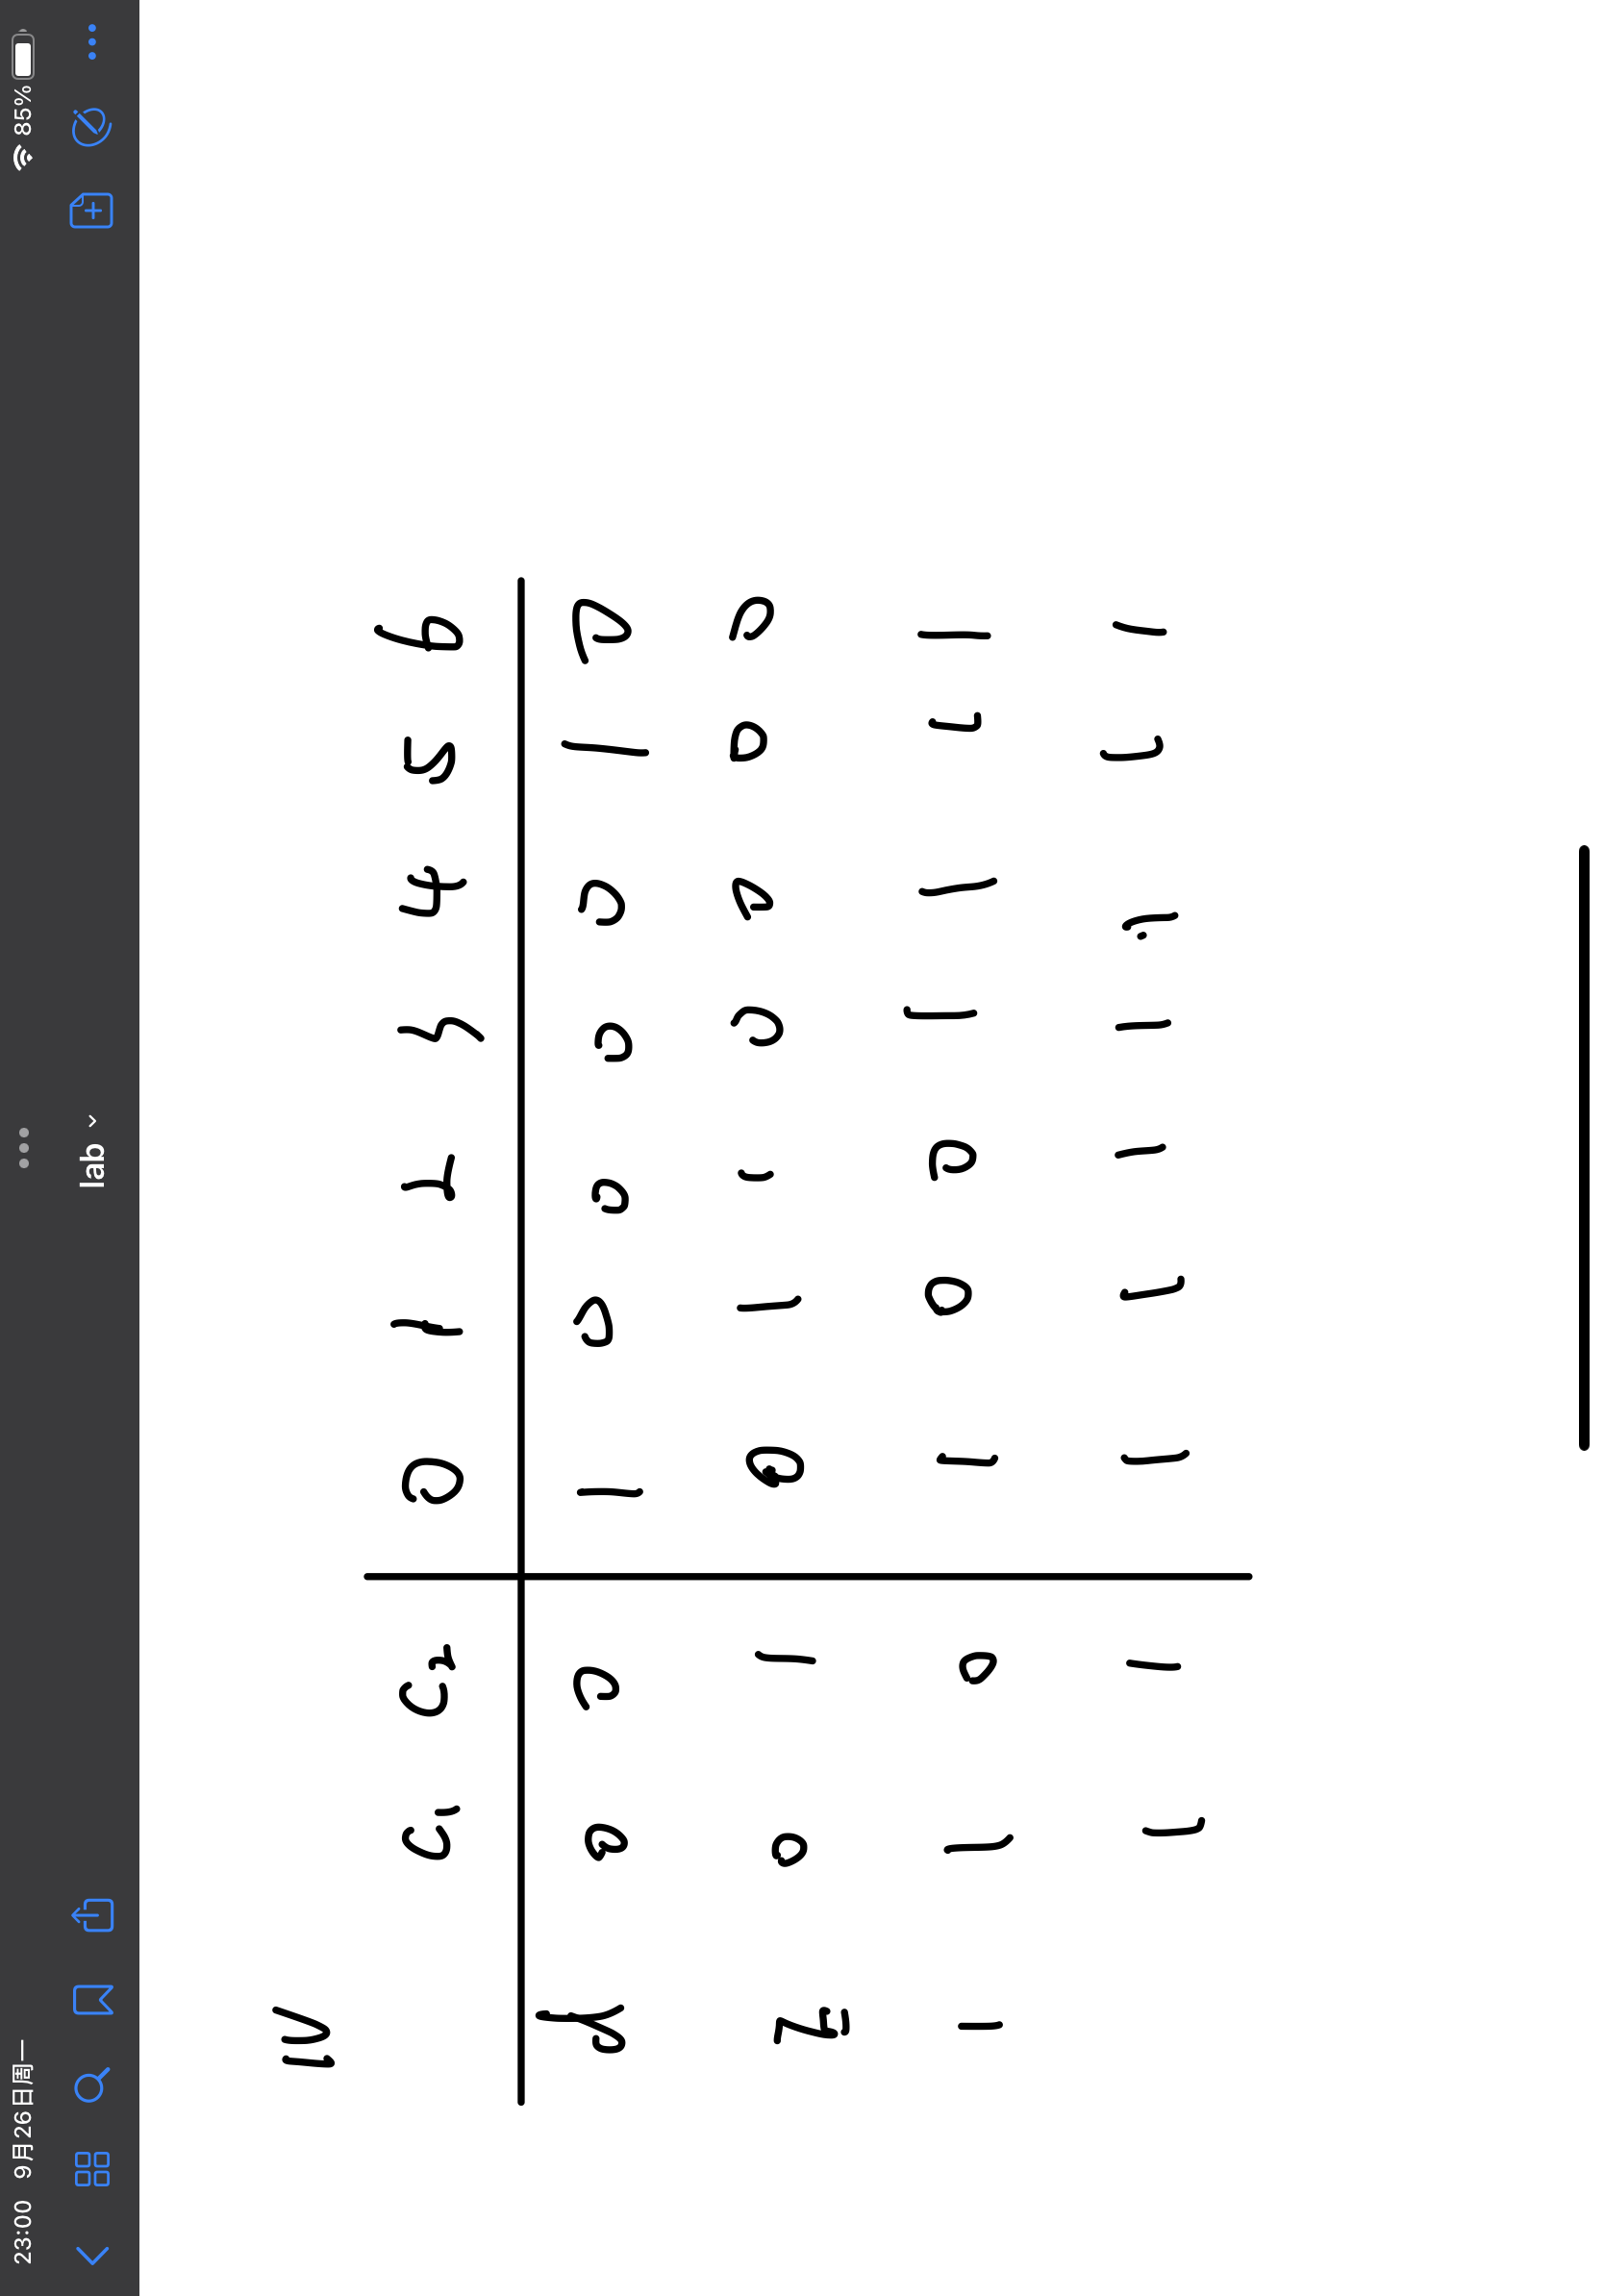 23:00 9月26日周一 85%
lab
IV
C1 C2 0 1 2 3 4 5 6
0 0 1 0 0 0 0 1 0
0 1 0 1 1 0 0 0 0
1 1 0 1 0 0 1 1 1 1
1 1 1 1 1 1 1 1 1